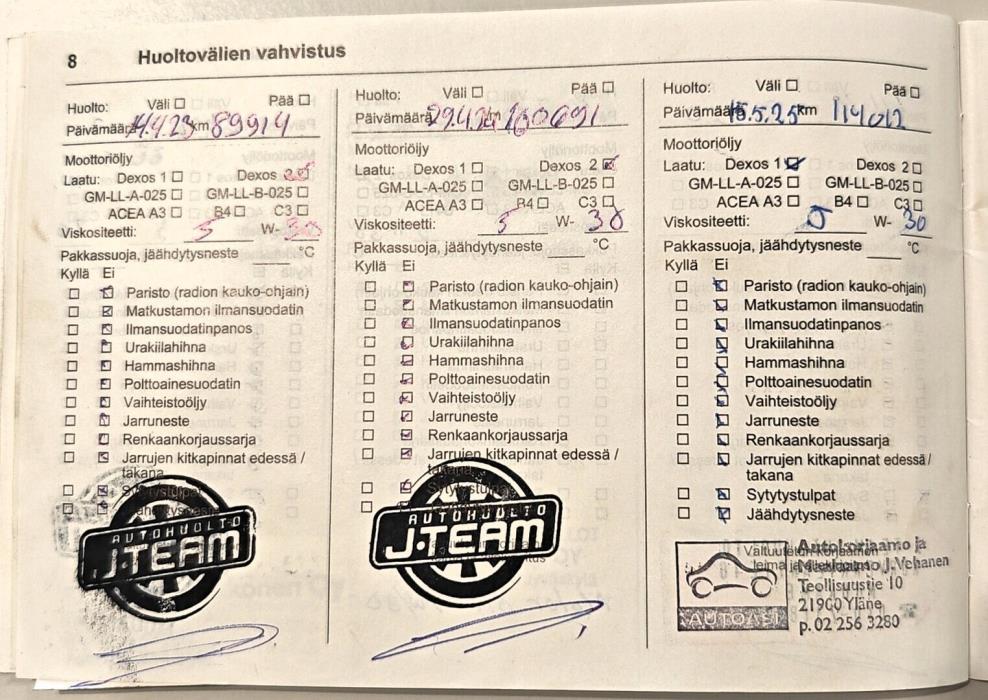 8 Huoltovälien vahvistus
Huolto: Väli Pää
Päivämäärä 4.4.23 km 89914
Moottoriöljy
Laatu: Dexos 1 Dexos 2
GM-LL-A-025 GM-LL-B-025
ACEA A3 B4 C3
Viskositeetti: 5 W- 30
Pakkassuoja, jäähdytysneste °C
Kyllä Ei
Paristo (radion kauko-ohjain)
Matkustamon ilmansuodatin
Ilmansuodatinpanos
Urakiilahihna
Hammashihna
Polttoainesuodatin
Vaihteistoöljy
Jarruneste
Renkaankorjaussarja
Jarrujen kitkapinnat edessä /
takana
Sytytystulpat
AUTOHUOLTO
J-TEAM
Huolto: Väli Pää
Päivämäärä 29.4.24 100691
Moottoriöljy
Laatu: Dexos 1 Dexos 2
GM-LL-A-025 GM-LL-B-025
ACEA A3 B4 C3
Viskositeetti: 5 W- 30
Pakkassuoja, jäähdytysneste °C
Kyllä Ei
Paristo (radion kauko-ohjain)
Matkustamon ilmansuodatin
Ilmansuodatinpanos
Urakiilahihna
Hammashihna
Polttoainesuodatin
Vaihteistoöljy
Jarruneste
Renkaankorjaussarja
Jarrujen kitkapinnat edessä /
takana
Sytytystulpat
AUTOHUOLTO
J-TEAM
Huolto: Väli Pää
Päivämäärä 15.5.25 km 114012
Moottoriöljy
Laatu: Dexos 1 Dexos 2
GM-LL-A-025 GM-LL-B-025
ACEA A3 B4 C3
Viskositeetti: 5 W- 30
Pakkassuoja, jäähdytysneste °C
Kyllä Ei
Paristo (radion kauko-ohjain)
Matkustamon ilmansuodatin
Ilmansuodatinpanos
Urakiilahihna
Hammashihna
Polttoainesuodatin
Vaihteistoöljy
Jarruneste
Renkaankorjaussarja
Jarrujen kitkapinnat edessä /
takana
Sytytystulpat
Jäähdytysneste
Valtuutetun korjaamon
leima ja
Autokorjaamo ja
J. Vehanen
Teollisuustie 10
21900 Yläne
p. 02 256 3280
AUTOASI